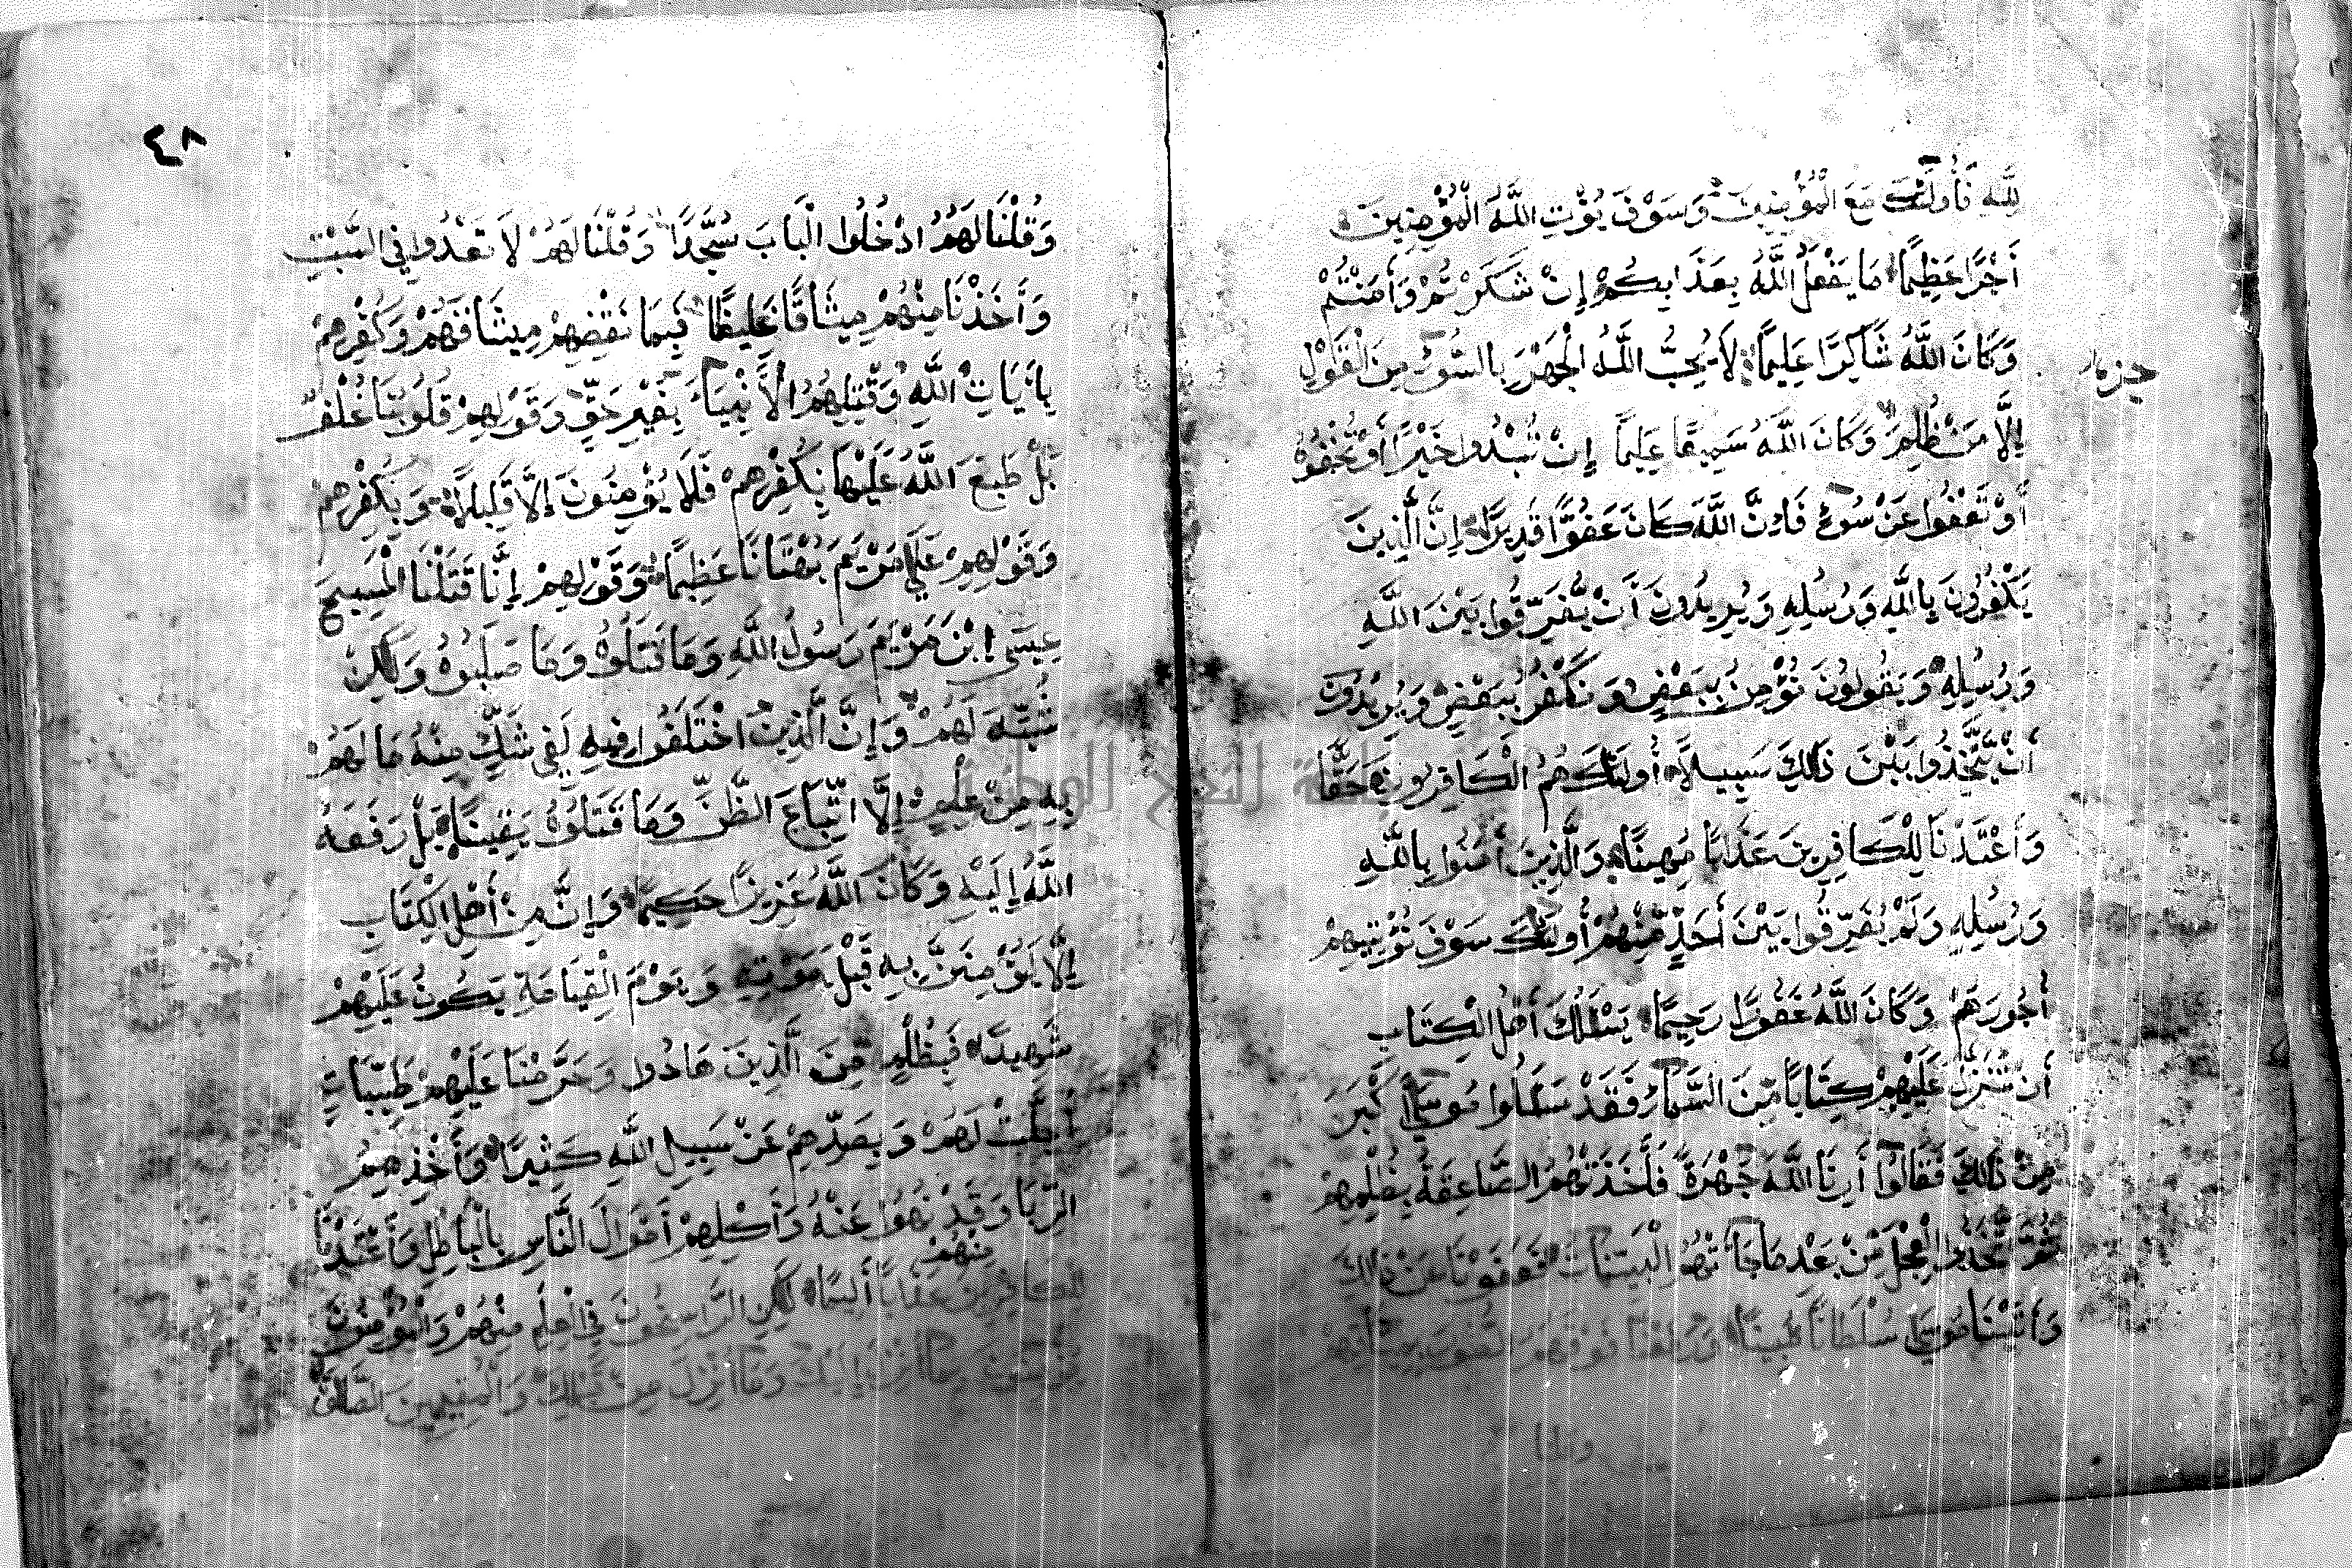 لِلَّهِ فَأُولَئِكَ مَعَ الْمُؤْمِنِينَ وَسَوْفَ يُؤْتِ اللَّهُ الْمُؤْمِنِينَ
أَجْرًا عَظِيمًا مَا يَفْعَلُ اللَّهُ بِعَذَابِكُمْ إِنْ شَكَرْتُمْ وَأَمَنْتُمْ
وَكَانَ اللَّهُ شَاكِرًا عَلِيمًا لَا يُحِبُّ اللَّهُ الْجَهْرَ بِالسُّوءِ مِنَ الْقَوْلِ
جزء
إِلَّا مَنْ ظُلِمَ وَكَانَ اللَّهُ سَمِيعًا عَلِيمًا إِنْ تُبْدُوا خَيْرًا أَوْ تُخْفُوهُ
أَوْ تَعْفُوا عَنْ سُوءٍ فَإِنَّ اللَّهَ كَانَ عَفُوًّا قَدِيرًا إِنَّ الَّذِينَ
يَكْفُرُونَ بِاللَّهِ وَرُسُلِهِ وَيُرِيدُونَ أَنْ يُفَرِّقُوا بَيْنَ اللَّهِ
وَرُسُلِهِ وَيَقُولُونَ نُؤْمِنُ بِبَعْضٍ وَنَكْفُرُ بِبَعْضٍ وَيُرِيدُونَ
أَنْ يَتَّخِذُوا بَيْنَ ذَلِكَ سَبِيلًا أُولَئِكَ هُمُ الْكَافِرُونَ حَقًّا
وَأَعْتَدْنَا لِلْكَافِرِينَ عَذَابًا مُهِينًا وَالَّذِينَ أَمَنُوا بِاللَّهِ
وَرُسُلِهِ وَلَمْ يُفَرِّقُوا بَيْنَ أَحَدٍ مِّنْهُمْ أُولَئِكَ سَوْفَ نُؤْتِيهِمْ
أُجُورَهُمْ وَكَانَ اللَّهُ غَفُورًا رَحِيمًا يَسْئَلُكَ أَهْلُ الْكِتَابِ
أَنْ تُنَزِّلَ عَلَيْهِمْ كِتَابًا مِّنَ السَّمَاءِ فَقَدْ سَأَلُوا مُوسَى أَكْبَرَ
مِنْ ذَلِكَ فَقَالُوا أَرِنَا اللَّهَ جَهْرَةً فَأَخَذَتْهُمُ الصَّاعِقَةُ بِظُلْمِهِمْ
ثُمَّ اتَّخَذُوا الْعِجْلَ مِنْ بَعْدِ مَا جَاءَتْهُمُ الْبَيِّنَاتُ فَعَفَوْنَا عَنْ ذَلِكَ
وَأَتَيْنَا مُوسَى سُلْطَانًا مُبِينًا وَرَفَعْنَا فَوْقَهُمُ الطُّورَ بِمِيثَاقِهِمْ
وقلنا
٨٤
وَقُلْنَا لَهُمُ ادْخُلُوا الْبَابَ سُجَّدًا وَقُلْنَا لَهُمْ لَا تَعْدُوا فِي السَّبْتِ
وَأَخَذْنَا مِنْهُمْ مِيثَاقًا غَلِيظًا فَبِمَا نَقْضِهِمْ مِيثَاقَهُمْ وَكُفْرِهِمْ
بِأَيَاتِ اللَّهِ وَقَتْلِهِمُ الْأَنْبِيَاءَ بِغَيْرِ حَقٍّ وَقَوْلِهِمْ قُلُوبُنَا غُلْفٌ
بَلْ طَبَعَ اللَّهُ عَلَيْهَا بِكُفْرِهِمْ فَلَا يُؤْمِنُونَ إِلَّا قَلِيلًا وَبِكُفْرِهِمْ
وَقَوْلِهِمْ عَلَى مَرْيَمَ بُهْتَانًا عَظِيمًا وَقَوْلِهِمْ إِنَّا قَتَلْنَا الْمَسِيحَ
عِيسَى ابْنَ مَرْيَمَ رَسُولَ اللَّهِ وَمَا قَتَلُوهُ وَمَا صَلَبُوهُ وَلَكِنْ
شُبِّهَ لَهُمْ وَإِنَّ الَّذِينَ اخْتَلَفُوا فِيهِ لَفِي شَكٍّ مِنْهُ مَا لَهُمْ
بِهِ مِنْ عِلْمٍ إِلَّا اتِّبَاعَ الظَّنِّ وَمَا قَتَلُوهُ يَقِينًا بَلْ رَفَعَهُ
اللَّهُ إِلَيْهِ وَكَانَ اللَّهُ عَزِيزًا حَكِيمًا وَإِنْ مِنْ أَهْلِ الْكِتَابِ
إِلَّا لَيُؤْمِنَنَّ بِهِ قَبْلَ مَوْتِهِ وَيَوْمَ الْقِيَامَةِ يَكُونُ عَلَيْهِمْ
شَهِيدًا فَبِظُلْمٍ مِّنَ الَّذِينَ هَادُوا وَحَرَّمْنَا عَلَيْهِمْ طَيِّبَاتٍ
أُحِلَّتْ لَهُمْ وَبِصَدِّهِمْ عَنْ سَبِيلِ اللَّهِ كَثِيرًا وَأَخْذِهِمُ
الرِّبَا وَقَدْ نُهُوا عَنْهُ وَأَكْلِهِمْ أَمْوَالَ النَّاسِ بِالْبَاطِلِ وَأَعْتَدْنَا
مِنْهُمْ
لِلْكَافِرِينَ عَذَابًا أَلِيمًا لَكِنِ الرَّاسِخُونَ فِي الْعِلْمِ مِنْهُمْ وَالْمُؤْمِنُونَ
يُؤْمِنُونَ بِمَا أُنْزِلَ إِلَيْكَ وَمَا أُنْزِلَ مِنْ قَبْلِكَ وَالْمُقِيمِينَ الصَّلَاةَ